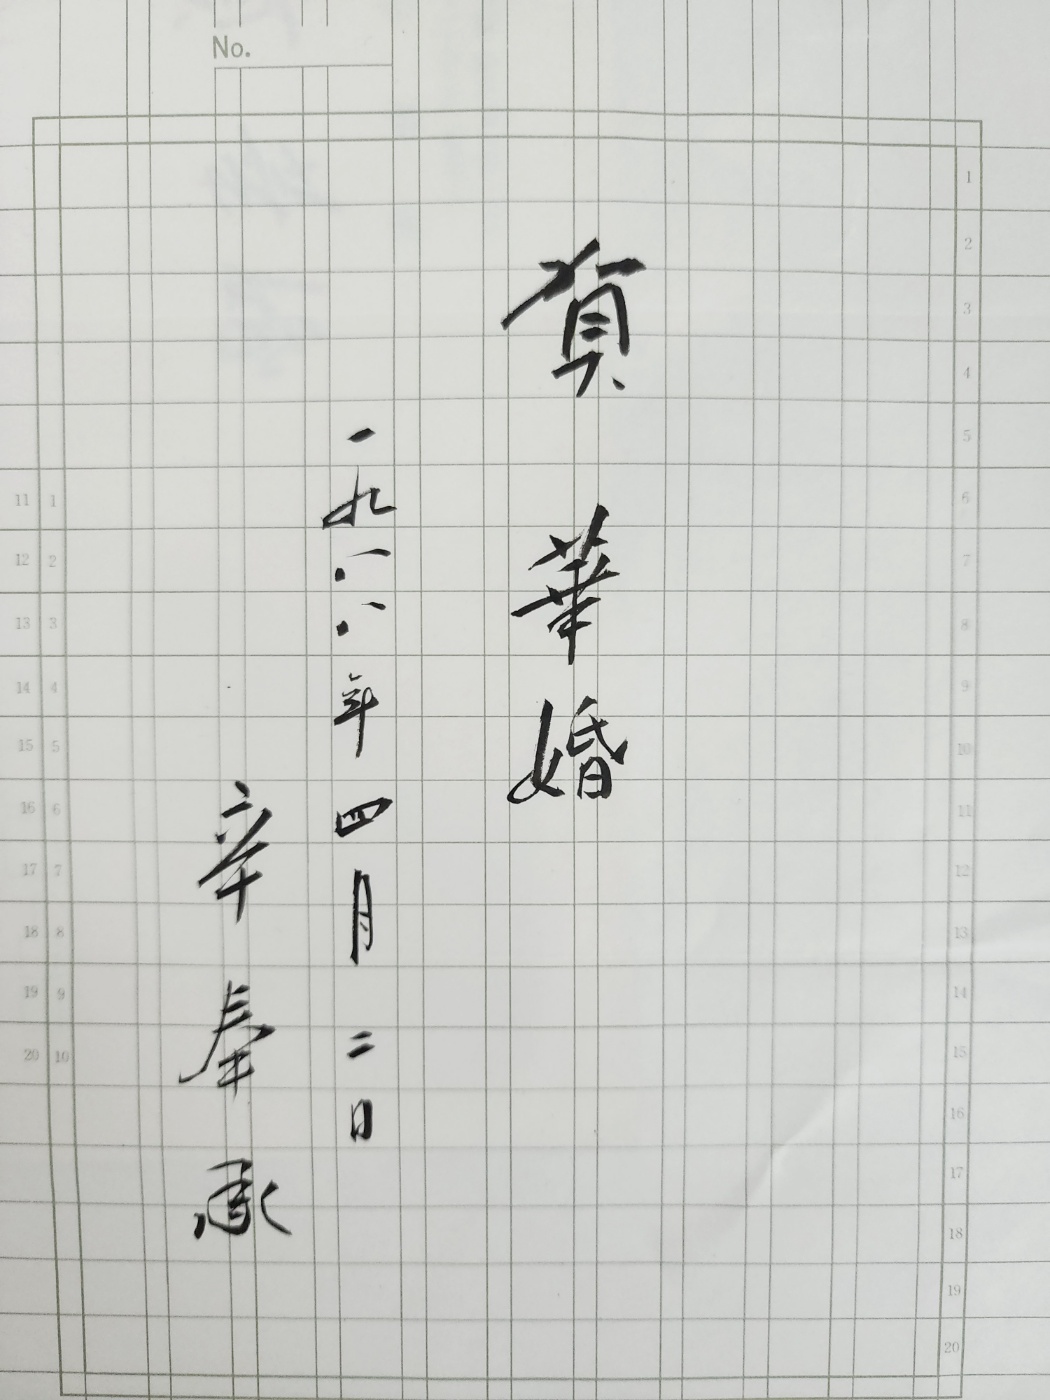 No.
賀 華婚
一九八八年 四月 二日
辛 奉 承
1
2
3
4
5
6
7
8
9
10
11
12
13
14
15
16
17
18
19
20
11 1
12 2
13 3
14 4
15 5
16 6
17 7
18 8
19 9
20 10